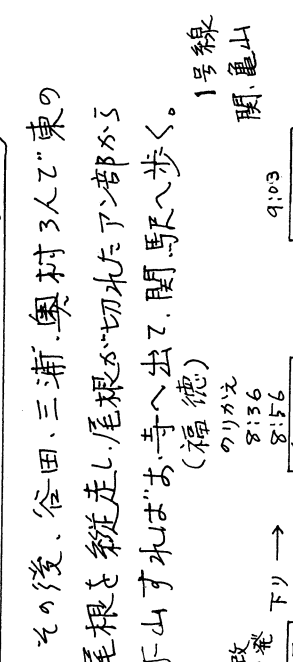 その後、谷田、三浦、奥村3人で東の
尾根を縦走し、尾根が切れたアン部から
下山すればお寺へ出て、関駅へ歩く。
(福徳)
1号線
関、亀山
のりかえ
8:36
8:56
9:03
下り →
発